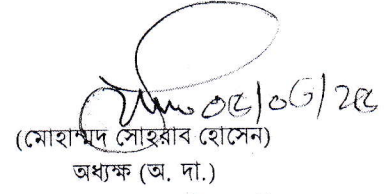 ০৫/০৬/২৫
(মোহাম্মদ সোহরাব হোসেন)
অধ্যক্ষ (অ. দা.)